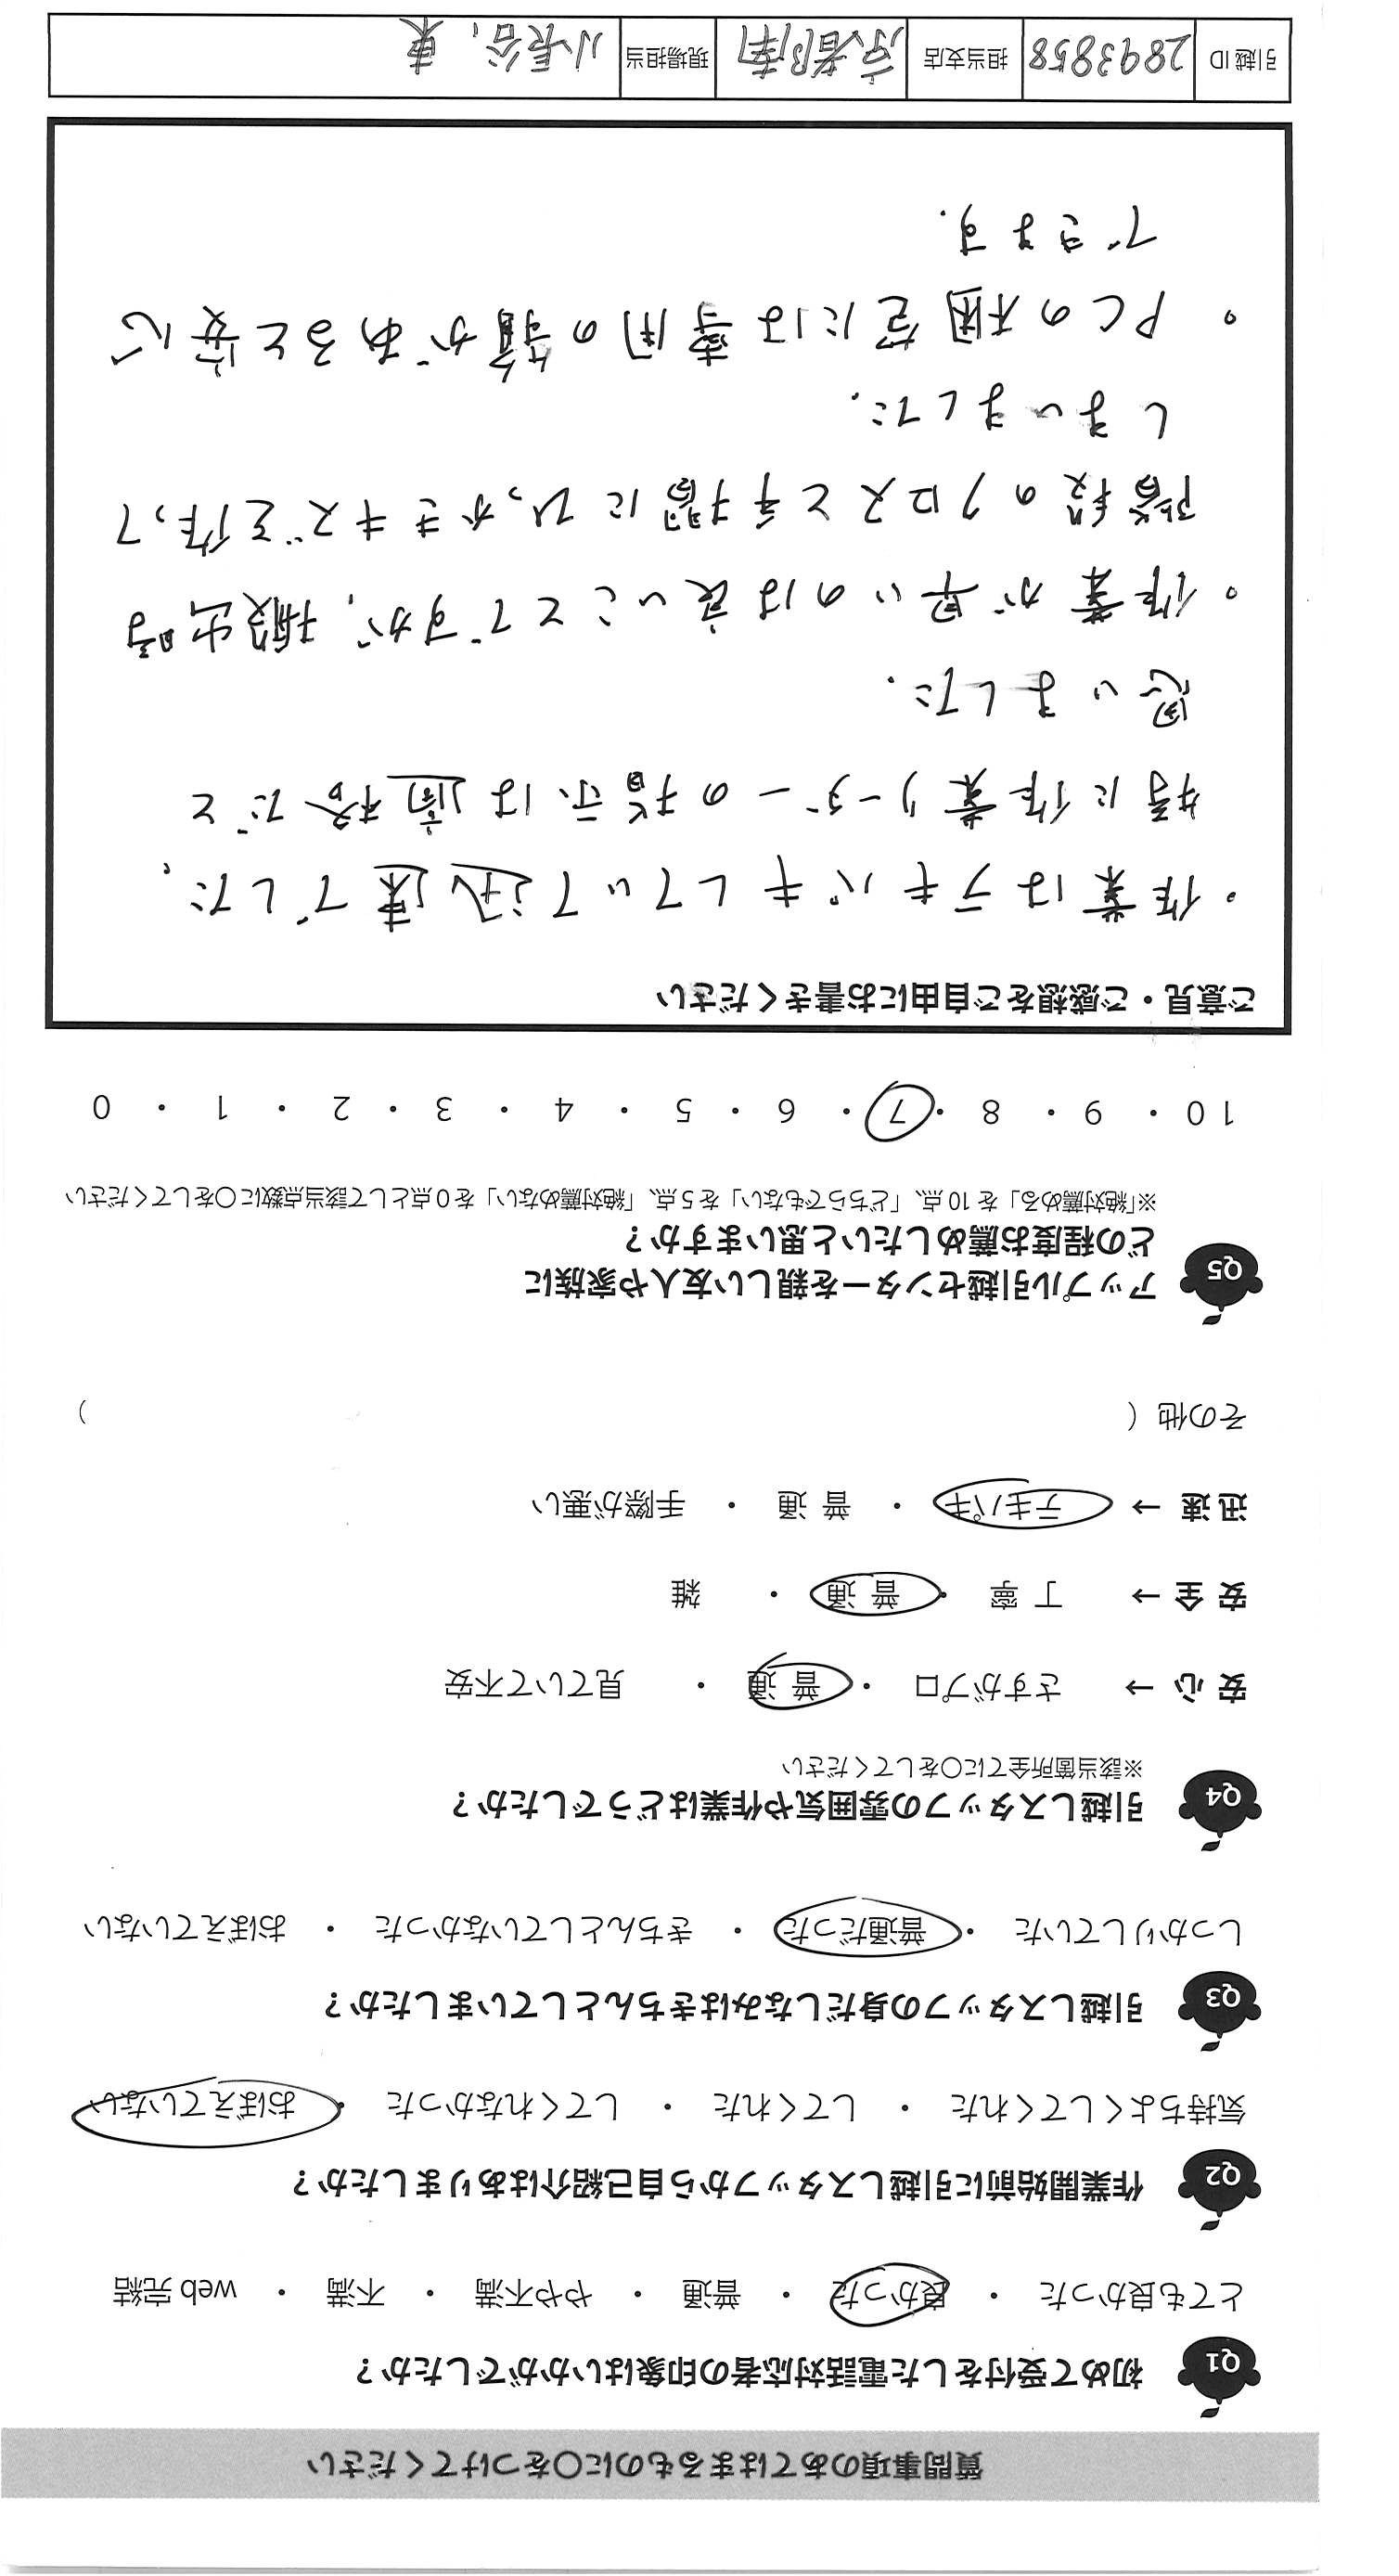 質問事項のあてはまるものに○をつけてください
Q1 初めて受付をした電話対応者の印象はいかがでしたか？
とても良かった ・ 良かった ・ 普通 ・ やや不満 ・ 不満 ・ web 完結
Q2 作業開始前に引越しスタッフから自己紹介はありましたか？
気持ちよくしてくれた ・ してくれた ・ してくれなかった ・ おぼえていない
Q3 引越しスタッフの身だしなみはきちんとしていましたか？
しっかりしていた ・ 普通だった ・ きちんとしていなかった ・ おぼえていない
Q4 引越しスタッフの雰囲気や作業はどうでしたか？
※該当箇所全てに○をしてください
安 心 → さすがプロ ・ 普 通 ・ 見ていて不安
安 全 → 丁 寧 ・ 普 通 ・ 雑
迅 速 → テキパキ ・ 普 通 ・ 手際が悪い
その他（ ）
Q5 アップル引越センターを親しい友人や家族に
どの程度お薦めしたいと思いますか？
※「絶対薦める」を 10 点、「どちらでもない」を 5 点、「絶対薦めない」を 0 点として該当点数に○をしてください
10 ・ 9 ・ 8 ・ 7 ・ 6 ・ 5 ・ 4 ・ 3 ・ 2 ・ 1 ・ 0
ご意見・ご感想をご自由にお書きください
・作業はテキパキしていて迅速でした、
特に作業リーダーの指示は適格だと
思いました.
・作業が早いのは良いことですが、搬出時
階段のクロスと手摺にひっかきキズを作って
しまいました.
・PCの梱包には専用の箱があると安心
できます.
引越 ID 2893858 担当支店 京都南 現場担当 小長谷、東